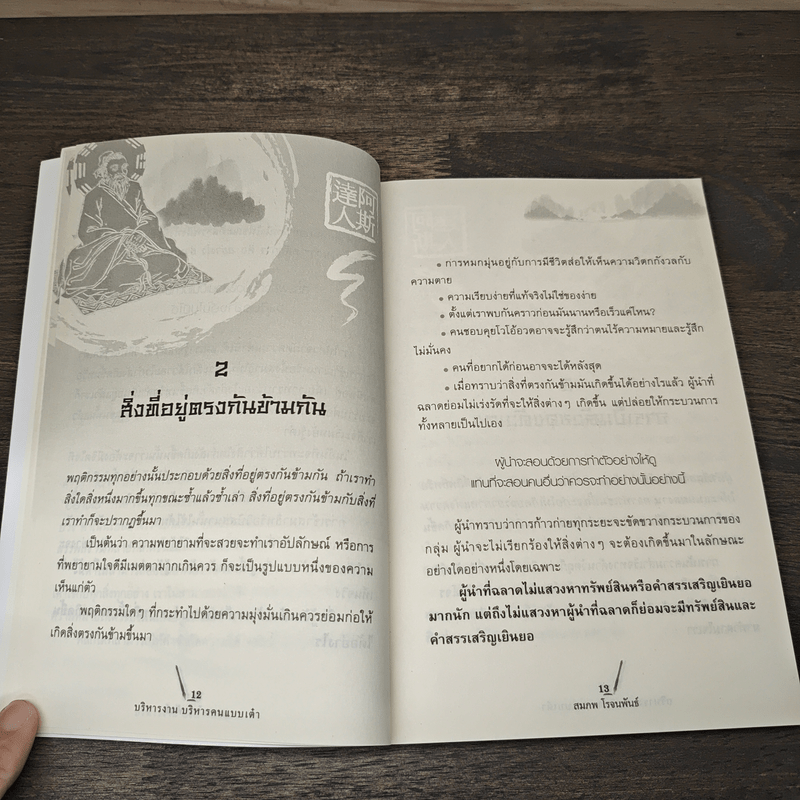 阿斯
達人
2
สิ่งที่อยู่ตรงกันข้ามกัน
พฤติกรรมทุกอย่างนั้นประกอบด้วยสิ่งที่อยู่ตรงกันข้ามกัน ถ้าเราทำ
สิ่งใดสิ่งหนึ่งมากขึ้นทุกขณะซ้ำแล้วซ้ำเล่า สิ่งที่อยู่ตรงกันข้ามกับสิ่งที่
เราทำก็จะปรากฏขึ้นมา
เป็นต้นว่า ความพยายามที่จะสวยจะทำเราอัปลักษณ์ หรือการ
ที่พยายามใจดีมีเมตตามากเกินควร ก็จะเป็นรูปแบบหนึ่งของความ
เห็นแก่ตัว
พฤติกรรมใดๆ ที่กระทำไปด้วยความมุ่งมั่นเกินควรย่อมก่อให้
เกิดสิ่งตรงกันข้ามขึ้นมา
12
บริหารงาน บริหารคนแบบเต๋า
• การหมกมุ่นอยู่กับการมีชีวิตส่อให้เห็นความวิตกกังวลกับ
ความตาย
• ความเรียบง่ายที่แท้จริงไม่ใช่ของง่าย
• ตั้งแต่เราพบกันคราวก่อนมันนานหรือเร็วแค่ไหน?
• คนชอบคุยโวโอ้อวดอาจจะรู้สึกว่าตนไร้ความหมายและรู้สึก
ไม่มั่นคง
• คนที่อยากได้ก่อนอาจจะได้หลังสุด
• เมื่อทราบว่าสิ่งที่ตรงกันข้ามมันเกิดขึ้นได้อย่างไรแล้ว ผู้นำที่
ฉลาดย่อมไม่เร่งรัดที่จะให้สิ่งต่างๆ เกิดขึ้น แต่ปล่อยให้กระบวนการ
ทั้งหลายเป็นไปเอง
ผู้นำจะสอนด้วยการทำตัวอย่างให้ดู
แทนที่จะสอนคนอื่นว่าควรจะทำอย่างนั้นอย่างนี้
ผู้นำทราบว่าการก้าวก่ายทุกระยะจะขัดขวางกระบวนการของ
กลุ่ม ผู้นำจะไม่เรียกร้องให้สิ่งต่างๆ จะต้องเกิดขึ้นมาในลักษณะ
อย่างใดอย่างหนึ่งโดยเฉพาะ
ผู้นำที่ฉลาดไม่แสวงหาทรัพย์สินหรือคำสรรเสริญเยินยอ
มากนัก แต่ถึงไม่แสวงหาผู้นำที่ฉลาดก็ย่อมจะมีทรัพย์สินและ
คำสรรเสริญเยินยอ
13
สมภพ โรจนพันธ์